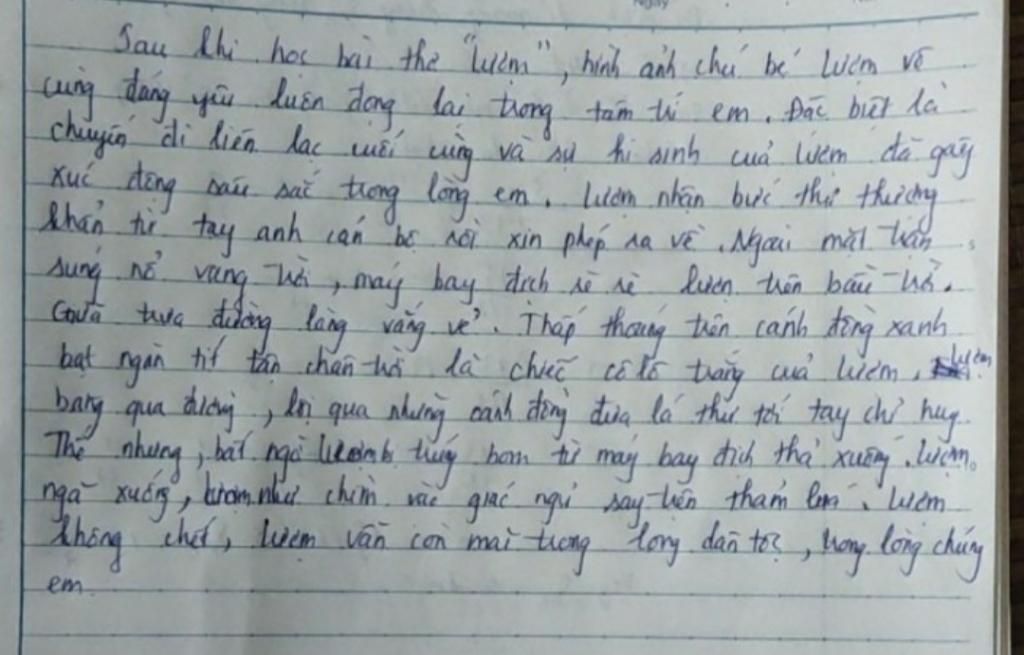 Sau khi học bài thơ "Lượm", hình ảnh chú bé Lượm vô
cùng đáng yêu luôn đọng lại trong tâm trí em. Đặc biệt là
chuyến đi liên lạc cuối cùng và sự hi sinh của Lượm đã gây
xúc động sâu sắc trong lòng em. Lượm nhận bức thư thượng
khẩn từ tay anh cán bộ rồi xin phép ra về. Ngoài mặt trận
súng nổ vang trời, máy bay địch rè rè lượn trên bầu trời.
Giữa trưa đường làng vắng vẻ. Thấp thoáng trên cánh đồng xanh
bạt ngàn tít tận chân trời là chiếc ca lô trắng của Lượm. Lượm
băng qua đường, lội qua những cánh đồng đưa lá thư tới tay chỉ huy.
Thế nhưng, bất ngờ Lượm trúng bom từ máy bay địch thả xuống. Lượm
ngã xuống, Lượm như chìm vào giấc ngủ say trên thảm lúa. Lượm
không chết, Lượm vẫn còn mãi trong lòng dân tộc, trong lòng chúng
em.